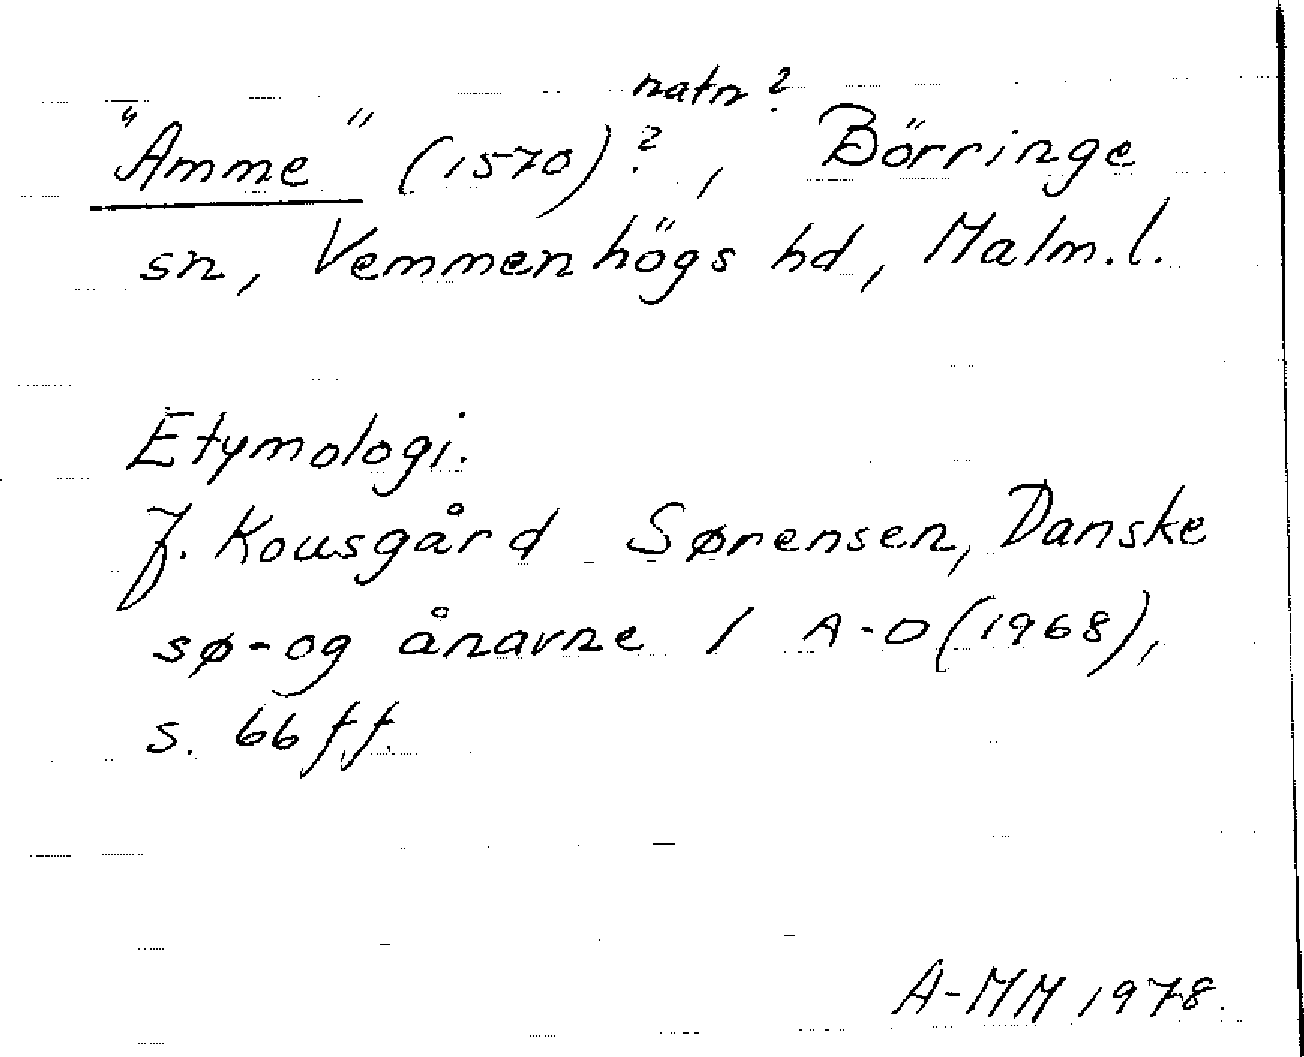 natn?
"Amme" (1570)?, Börringe
sn, Vemmenhögs hd, Malm.l.
Etymologi.
J. Kousgård Sørensen, Danske
sø- og ånavne 1 A-D (1968),
s. 66 ff.
A-MM 1978.